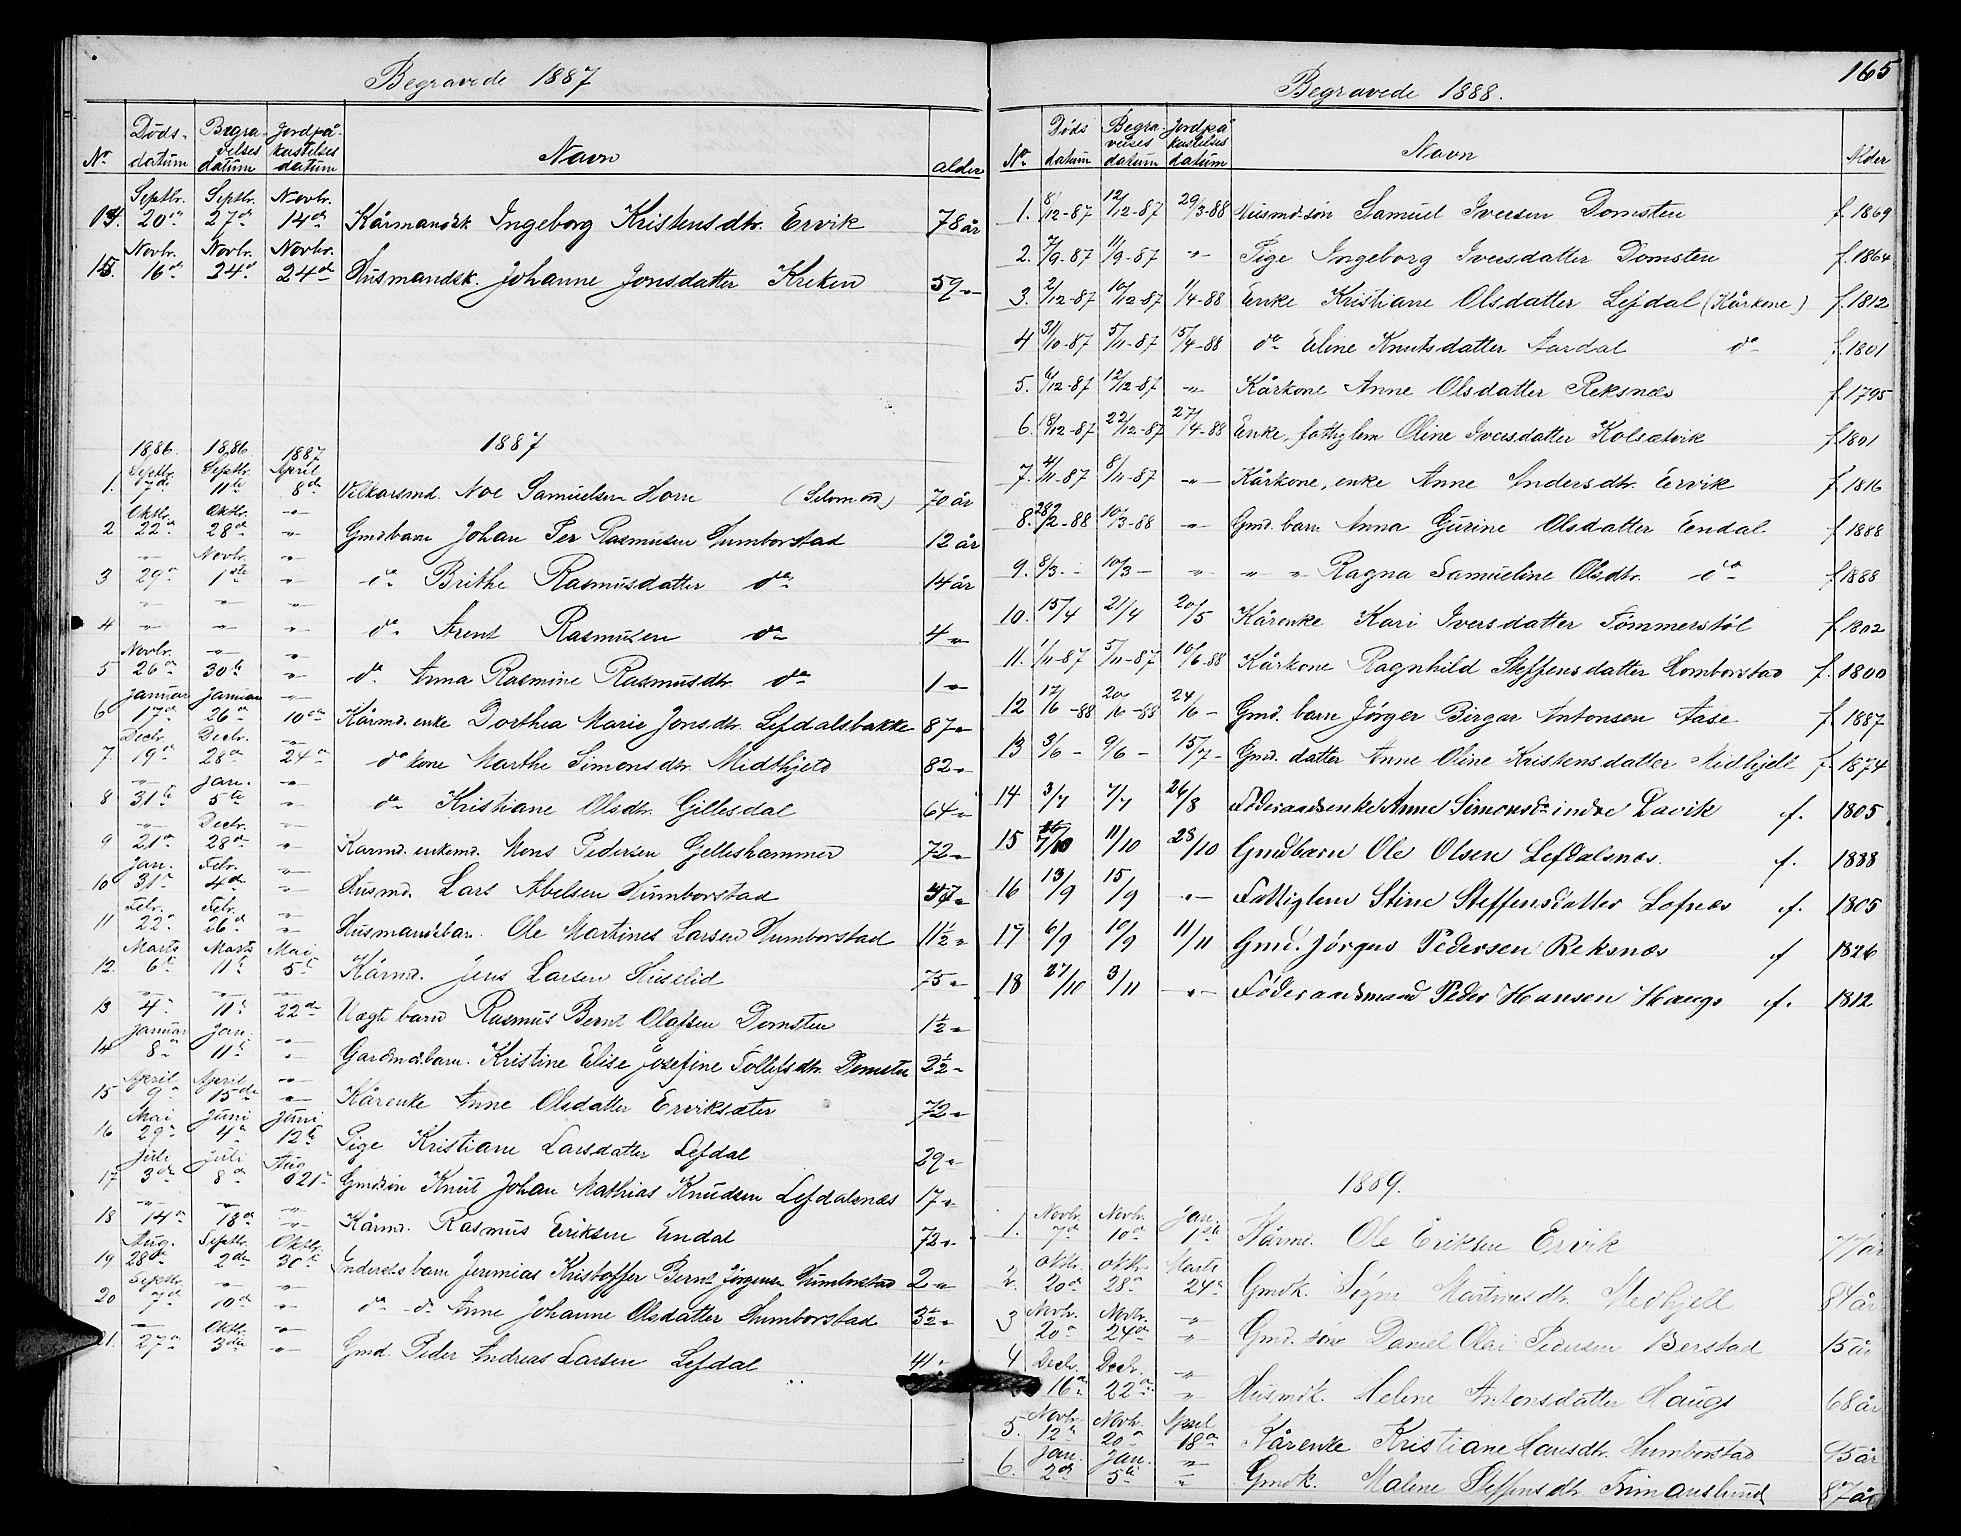 Begravede 1887
No Dødsdatum Begravelsesdatum Jordpåkastelsesdatum Navn alder
14. Septbr. 20de Septbr. 27de Novbr. 14de Kårmandsk Ingeborg Kristensdtr. Ervik 78 år
15. Novbr. 16de Novbr. 24de Novbr. 24de Husmandsk. Johanne Jonsdatter Kreken 59 "
1887
1. 1886 Septbr. 7de 1886 Septbr. 11te 1887 April 8de Vilkarsmd. Noe Samuelsen Horn 70 år
2 Oktbr. 22de Oktbr. 28de " Gmdbarn Johan Per Rasmusen Humborstad 12 år
3 " 29de Novbr. 1ste " do Brithe Rasmusdatter do 14 år
4 " " " do Arent Rasmusen do 4 "
5 Novbr. 26de " 30te " do Anna Rasmine Rasmusdtr. do 1 "
6 Januar 17de Januar 26de " 10de Kårmd. enke Dorthea Marie Jonsdtr. Lefdalsbakke 87 "
7. Decbr. 19de Decbr. 28de " 24de do kone Marthe Simonsdtr. Midthjeld 82 "
8 " 31te Jan. 5te " do Kristiane Olsdtr. Gillesdal 64 "
9 " 21de Decbr. 28de " Karmd. enkemd. Mons Pedersen Gelleshammer 72 "
10 Jan. 31te Febr. 4de " Husmd. Lars Abelsen Humborstad 47 "
11 Febr. 22de Febr. 26de " Husmandsbarn. Ole Martines Larsen Humborstad 11½ "
12. Marts 6te Marts 11te Mai 5te Kårmd. Jens Larsen Huselid 75 "
13 " 4de " 11te " 22de Uægte barn Rasmus Bernt Olafsen Domsten 1½ "
14 Januar 8de Jan. 11te " Gardmd.barn. Kristine Elise Josefine Tollefsdtr. Domsten 2½ "
15 April 9de April 15de " Kårenke Anne Olsdatter Erviksæter 72 "
16 Mai 29de Juni 4de Juni 12te Pige Kristiane Larsdatter Lefdal 29 "
17 Juli 3de Juli 8de Aug 21 Gmdsøn Knut Johan Mathias Knudsen Lefdalsnæs 17 "
18 " 14de " 18de " Kårmd. Rasmus Eriksen Endal 72 "
19 Aug. 28de Septbr. 2de Oktbr. 30te Inderstsbarn Jeremias Kristoffer Bernt Jørgensen Humborstad 2 "
20 Septbr. 7de " 10de " do do Anne Johanne Olsdatter Humborstad 3½ "
21. " 27de Oktbr. 3die " Gmd. Peder Andreas Larsen Lefdal 41 "
165
Begravede 1888.
No Døds datum Begravelses datum Jordpåkastelses datum Navn Alder
1. 8/12-87 12/12-87 29/3-88 Husmd.søn Samuel Iversen Domsten f. 1869
2. 7/9-87 11/9-87 " Pige Ingeborg Iversdatter Domsten f. 1864
3. 2/12-87 10/12-87 1/4-88 Enke Kristiane Olsdatter Lefdal (Kårkone) f. 1812
4 31/10-87 5/11-87 15/4-88 do Eline Knutsdatter Aardal do f. 1801
5. 6/12-87 12/12-87 " Kårkone Anne Olsdatter Reksnæs f. 1795
6. 18/12-87 22/12-87 27/4-88 Enke, fattiglem Oline Iversdatter Kolsætvik f. 1801
7. 4/11-87 8/11-87 " Kårkone, enke Anne Andersdtr. Ervik f. 1816
8. 28/2-88 10/3-88 " Gmd. barn Anna Gurine Olsdatter Eendal f. 1888
9. 8/3 - 10/3 - " " " Ragna Samueline Olsdtr. do f. 1888
10. 15/4 21/4 20/5 Kårenke Kari Iversdatter Tømmerstøl f. 1802
11. 1/11-87 5/11-87 10/6-88 Kårkone Ragnhild Steffensdatter Homborstad f. 1800
12 12/6-88 20/6-88 24/6 - Gmd. barn Jørger Birgar Antonsen Aase f. 1887
13 3/6 - 9/6 - 15/7 - Gmd. datter Anne Oline Kristensdatter Midhjell f. 1874
14 3/7 7/7 26/8 Føderaadsenke Anne Simonsdr indre Davik f. 1805
15 7/10 11/10 28/10 Gmdbarn Ole Olsen Lefdalsnæs. f. 1888
16 13/9 15/9 " Fattiglem Stine Steffensdatter Lofnæs f. 1805
17 6/9 10/9 11/11 Gmd. Jørgen Pedersen Reksnæs f 1826
18 27/10 3/11 " Føderaadsmand Peder Hansen Hauge f. 1812
1889.
1. Novbr. 7de Novbr. 10de Jan. 1ste Kårmd. Ole Eriksen Ervik 77 år
2. Oktbr. 20de Oktbr. 28de Marts 24de Gmdk. Signe Martinusdtr. Medhjell 84 år
3 Novbr. 20de Novbr. 24de " Gmd. søn Daniel Olai Pedersen Berstad 15 år
4 Decbr. 16de Decbr. 22de " Husmdk. Helene Antonsdatter Hauge 68 år
5. Novbr. 12te Novbr. 20de April 18de Kårenke Kristiane Hansdtr. Humborstad 95 år
6. Jan. 2de Jan. 5te " Gmdk. Malene Steffensdtr Frimanslund 87 år